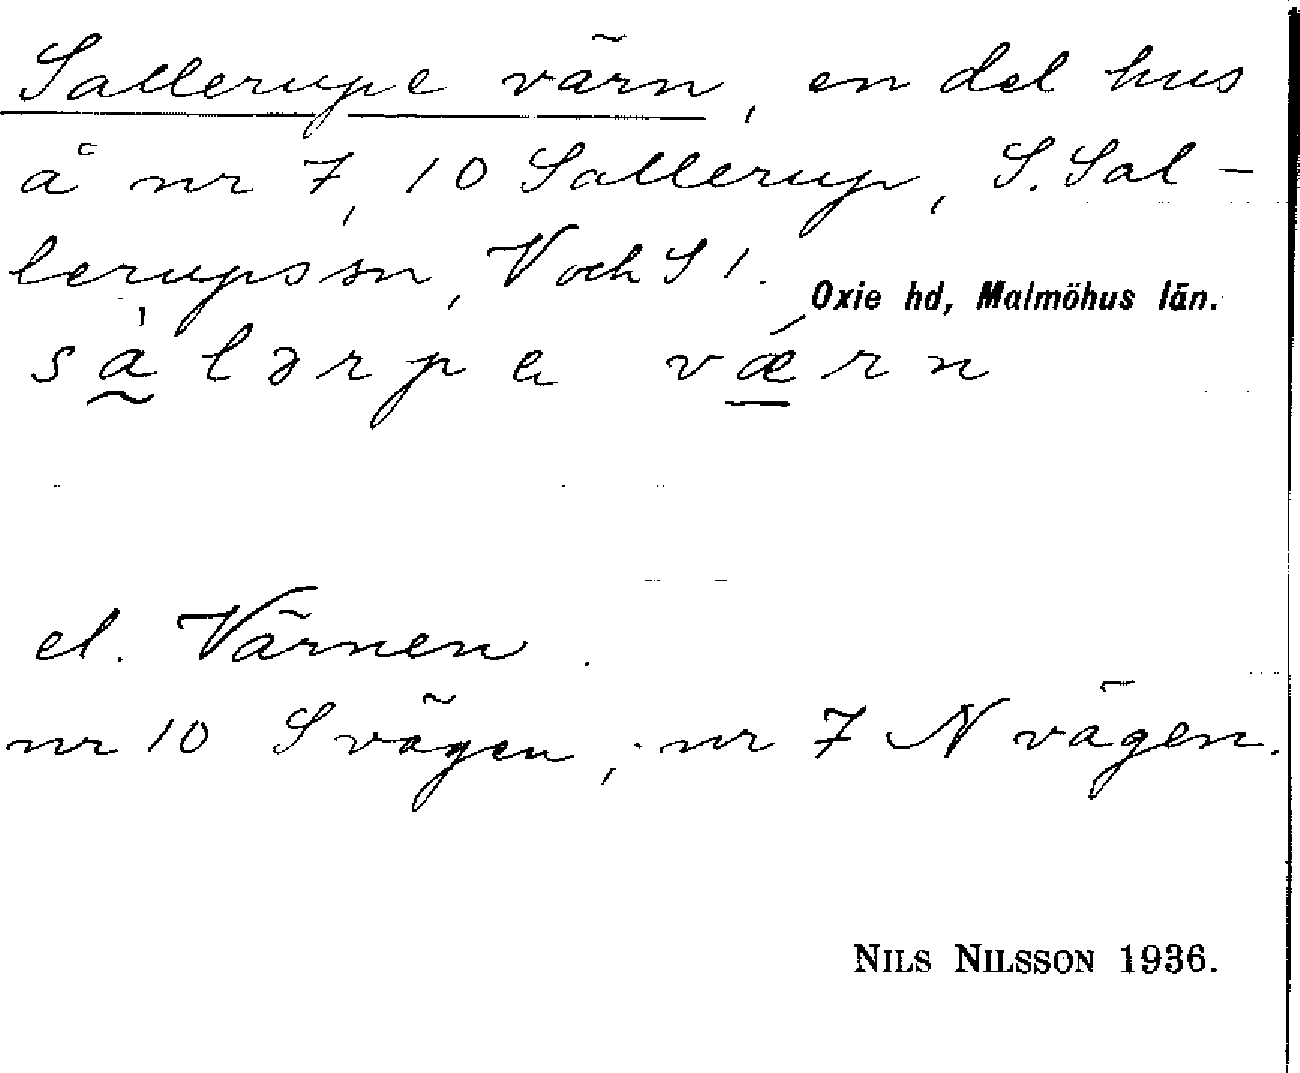 Sallerupe värn, en del hus
å nr 7, 10 Sallerup, S. Sal-
lerups sn, V och S 1.
Oxie hd, Malmöhus län.
sàlərpe vǽrn
el. Värnen.
nr 10 S vägen; nr 7 N vägen.
NILS NILSSON 1936.